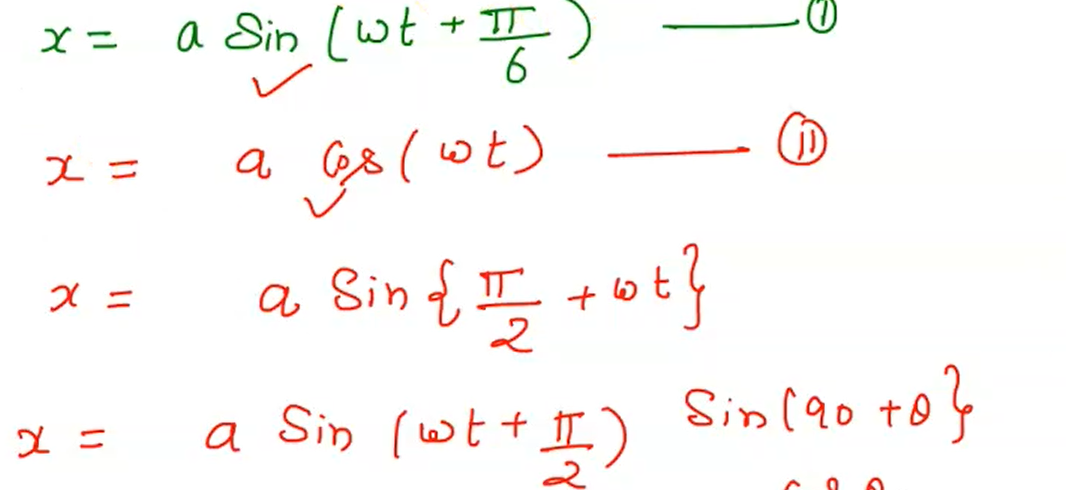 x = a Sin (ωt + π/6) —— (i)
x = a Cos (ωt) —— (ii)
x = a Sin {π/2 + ωt}
x = a Sin (ωt + π/2) Sin (90 + θ}